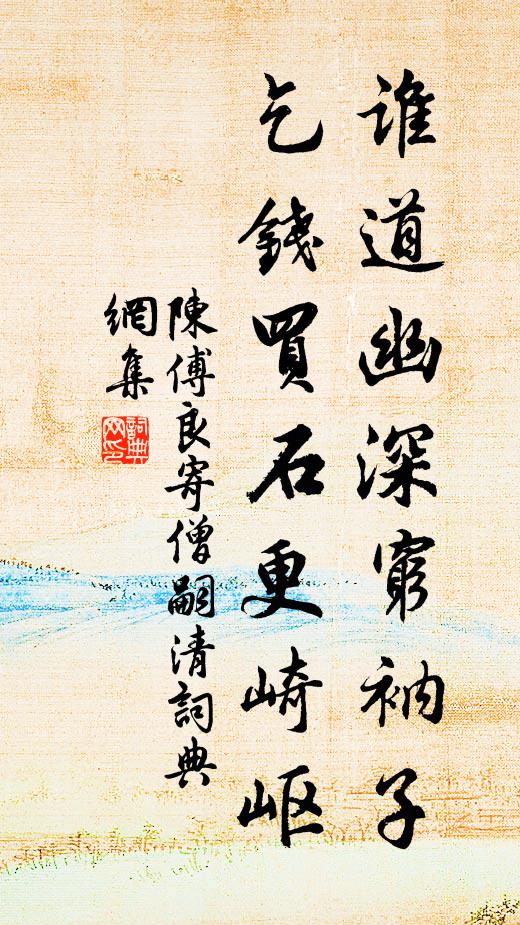 谁道幽深窮衲子
乞錢買石更崎岖
陳傅良寄僧嗣清詞典
網集
詞典
网印